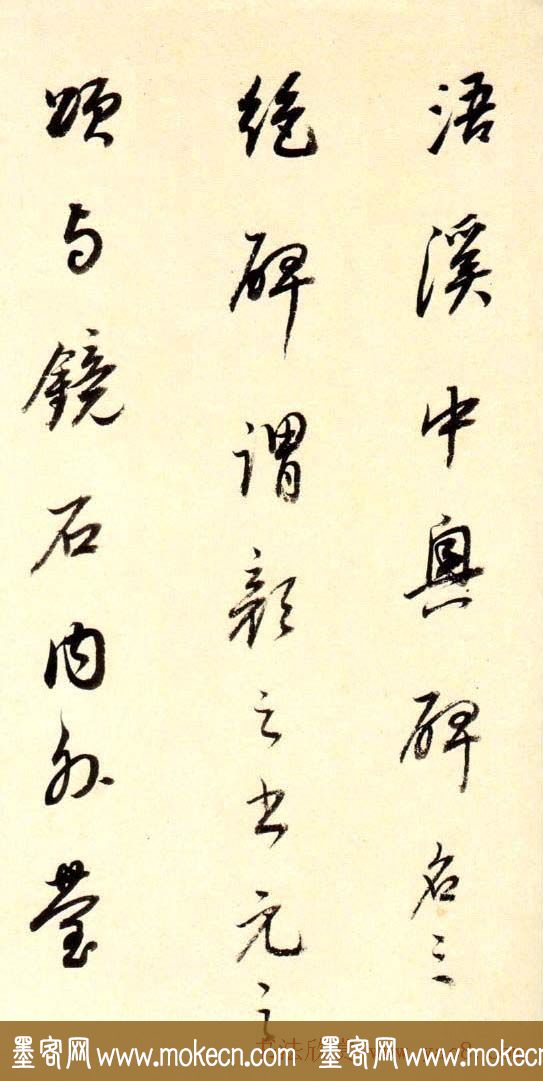 浯溪中興碑名三
絕碑謂顏之书元之
頌与鏡石内外瑩
墨客网 www.mokecn.com 墨客网 www.mokecn.com
书法欣